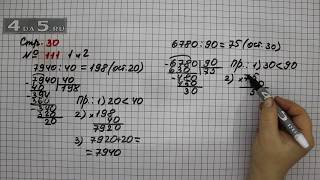 4da5.ru
Стр. 30
№ 111 1 и 2
7940 : 40 = 198 (ост. 20)
-7940 | 40
40 | 198
-394
360
-340
320
20
Пр.: 1) 20 < 40
2) × 198
40
7920
3) 7920 + 20 =
= 7940
6780 : 90 = 75 (ост. 30)
-6780 | 90
630 | 75
-480
450
30
Пр.: 1) 30 < 90
2) ×